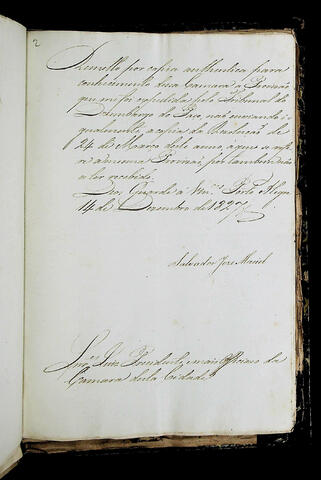 2
Remetto por copia authentica para
conhecimento dessa Camara a Provisão
que me foi expedida pelo Tribunal do
Desembargo do Paço não enviando i-
gualmente a copia da Resolução de
24 de Março deste anno, a que se refe-
re a mesma Provisão, por tambem não
a ter recebido.
Deos Guarde a Vm.ces Porto Alegre
14 de Dezembro de 1827
Salvador Jose Maciel
Snr.es Juiz Presidente, e mais Officiaes da
Camara desta Cidade